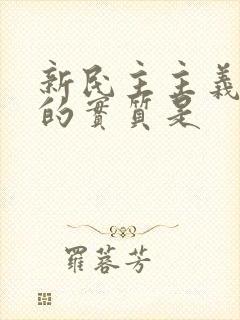 新民主主義
的實質是
羅蓉芳